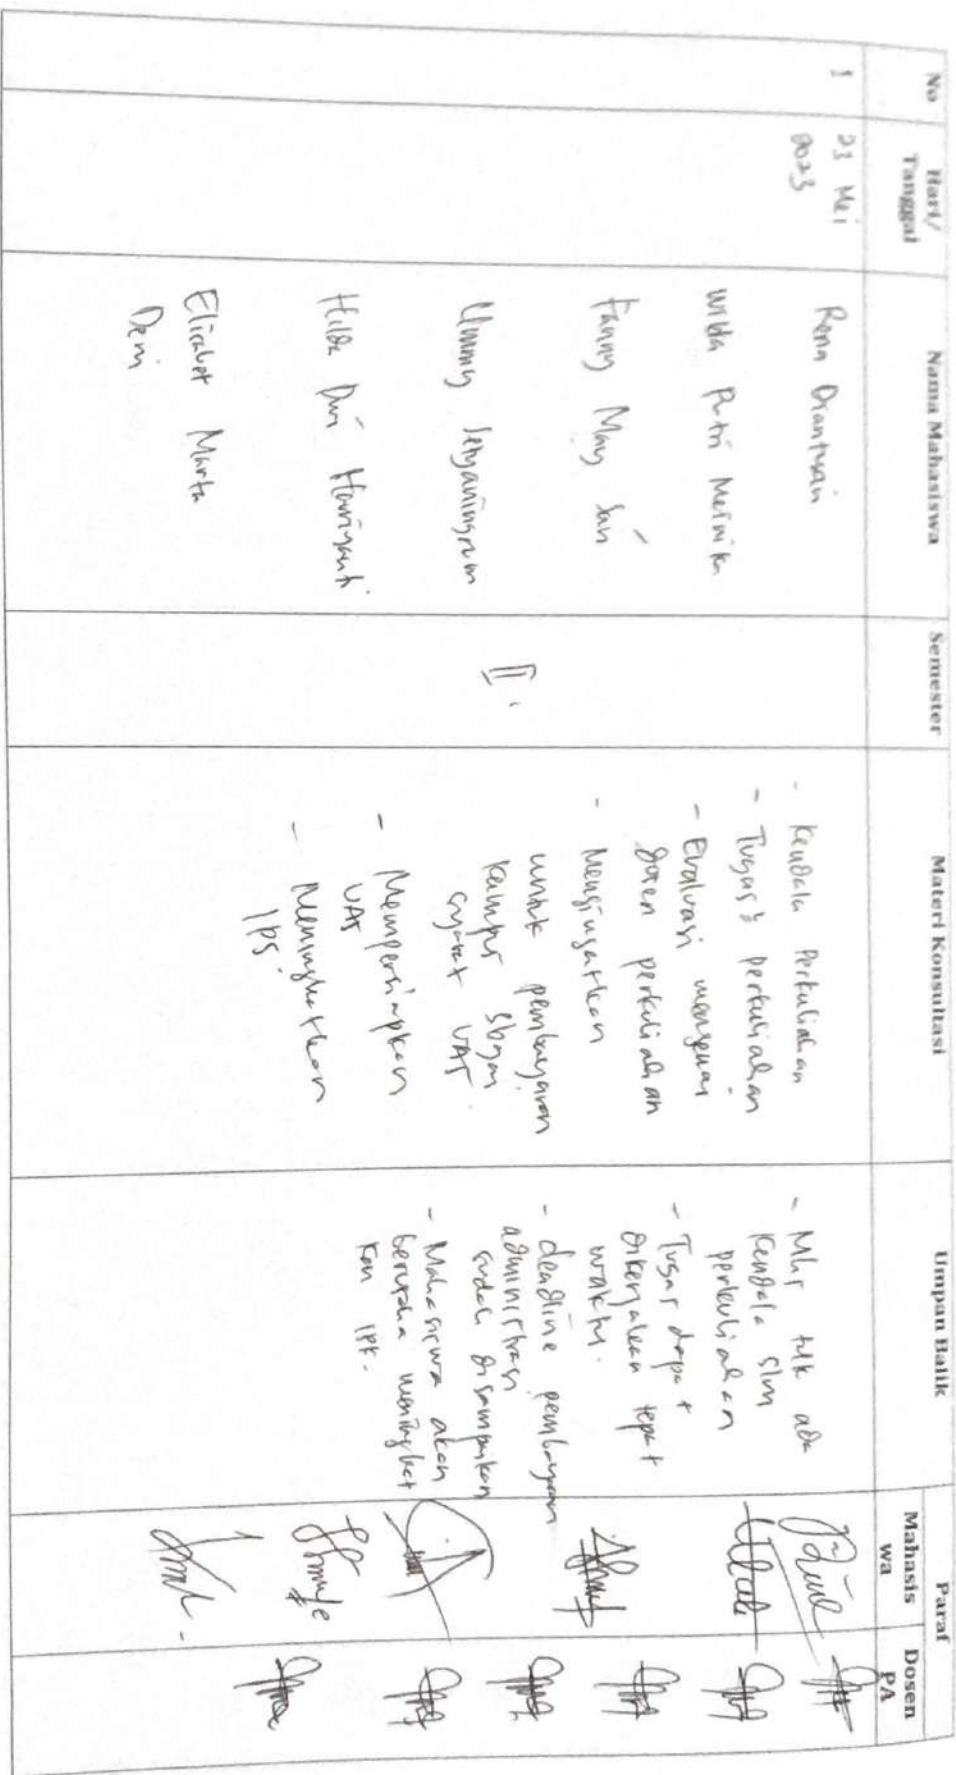 No
Hari/
Tanggal
Nama Mahasiswa
Semester
Materi Konsultasi
Umpan Balik
Paraf
Mahasis
wa
Dosen
PA
1
23 Mei
2023
Rena Diantusari
Wilda Putri Meinika
Fanny May Sari
Ummy Setyaningrum
Hilda Dwi Hariyanti
Elizabet Marta
Devi
II
- Kendala Perkuliahan
- Tugas2 perkuliahan
- Evaluasi mengenai
dosen perkuliahan
- Mengingatkan
untuk pembayaran
kampus sbgai
syarat UAS.
- Mempersiapkan
UAS
- Meningkatkan
IPS.
- Mhs tdk ada
kendala slm
perkuliahan
- Tugas dapat
dikerjakan tepat
waktu.
- deadline pembayaran
administrasi
sudah disampaikan
- Mahasiswa akan
berusaha meningkat
kan IPK.